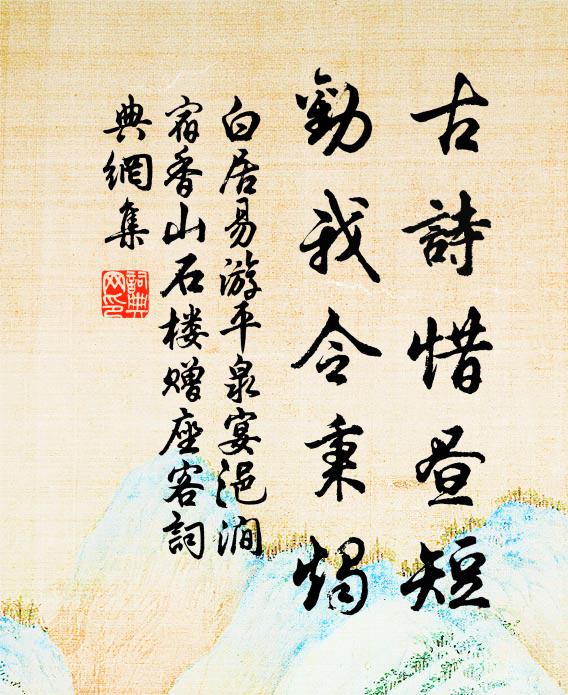 古詩惜昼短
勸我令秉燭
白居易游平泉宴浥澗
宿香山石楼赠座客詞
典網集
詞典
网印